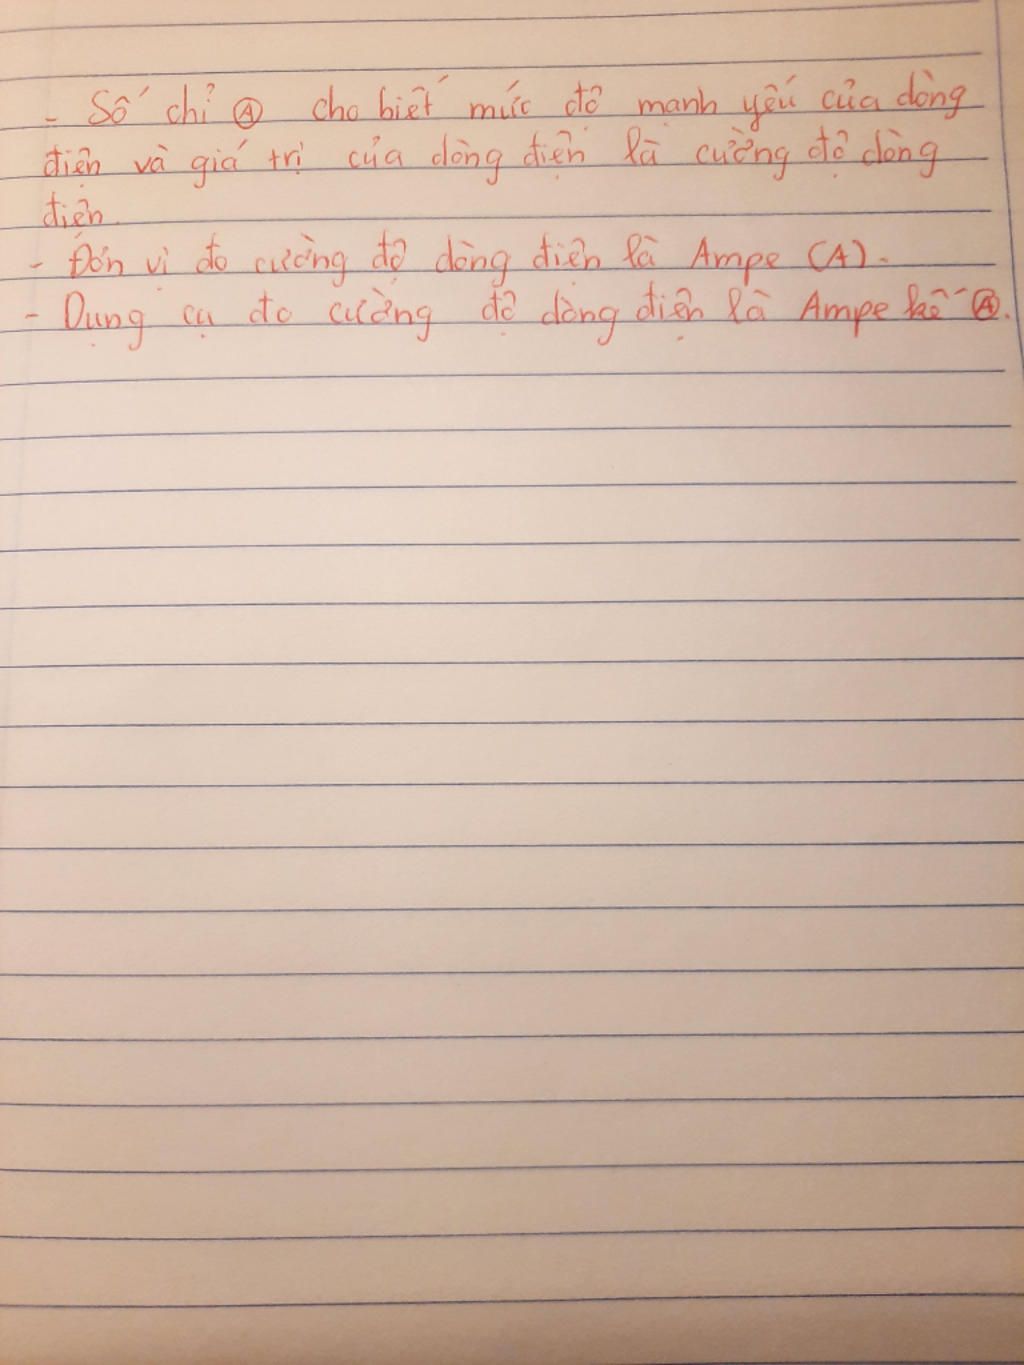 - Số chỉ Ⓐ cho biết mức độ mạnh yếu của dòng
điện và giá trị của dòng điện là cường độ dòng
điện.
- Đơn vị đo cường độ dòng điện là Ampe (A).
- Dụng cụ đo cường độ dòng điện là Ampe kế Ⓐ.